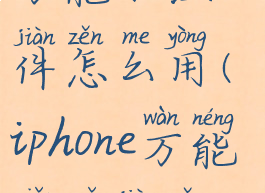 jiàn zěn me yòng
件怎么用(
wàn néng
iphone万能